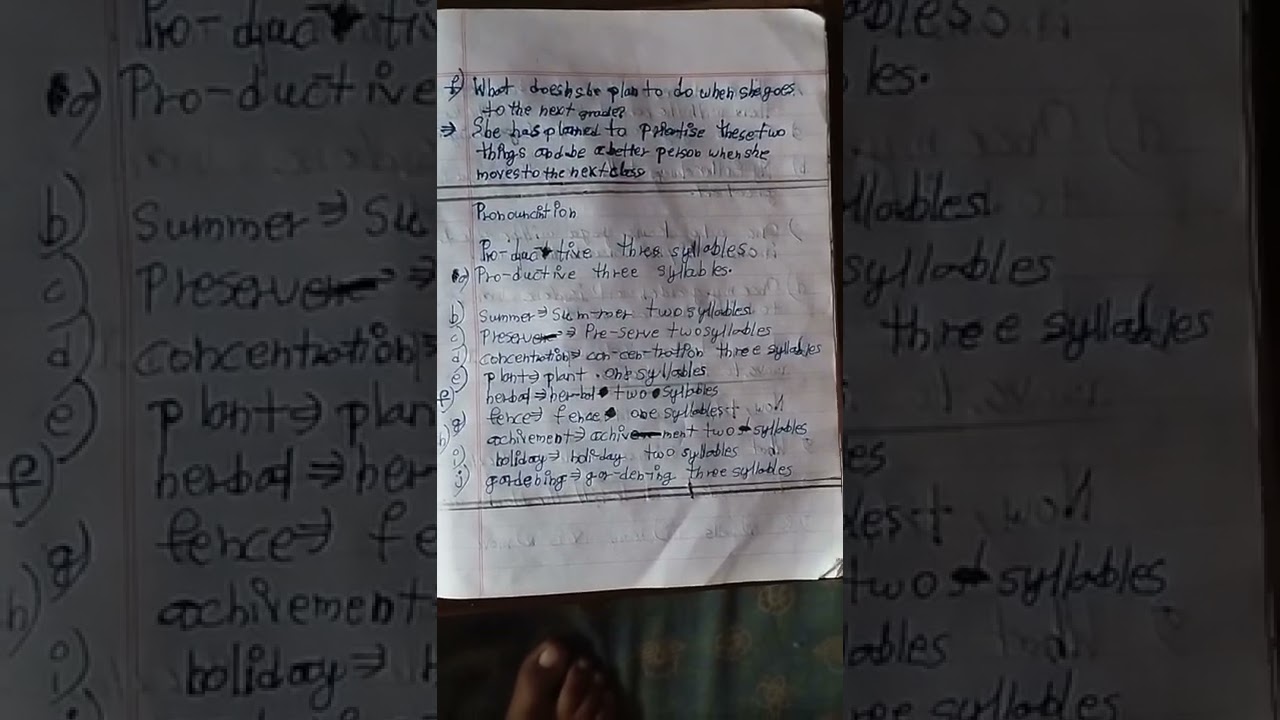 f) What does she plan to do when she goes
to the next grade?
⇒ She has planed to Prioritise these two
things and be a better person when she
moves to the next class
Pronounciation
Pro-duc-tive three syllables.
a) Pro-ductive three syllables.
b) Summer ⇒ Sum-mer two syllables.
c) Preserve ⇒ Pre-serve two syllables
d) concentration ⇒ con-cen-tration three syllables
e) plant ⇒ plant one syllables
f) herbal ⇒ herbal two syllables
g) fence ⇒ fence one syllables
h) achivement ⇒ achivement two syllables
i) holiday ⇒ holi-day two syllables
j) gardening ⇒ gar-dening three syllables